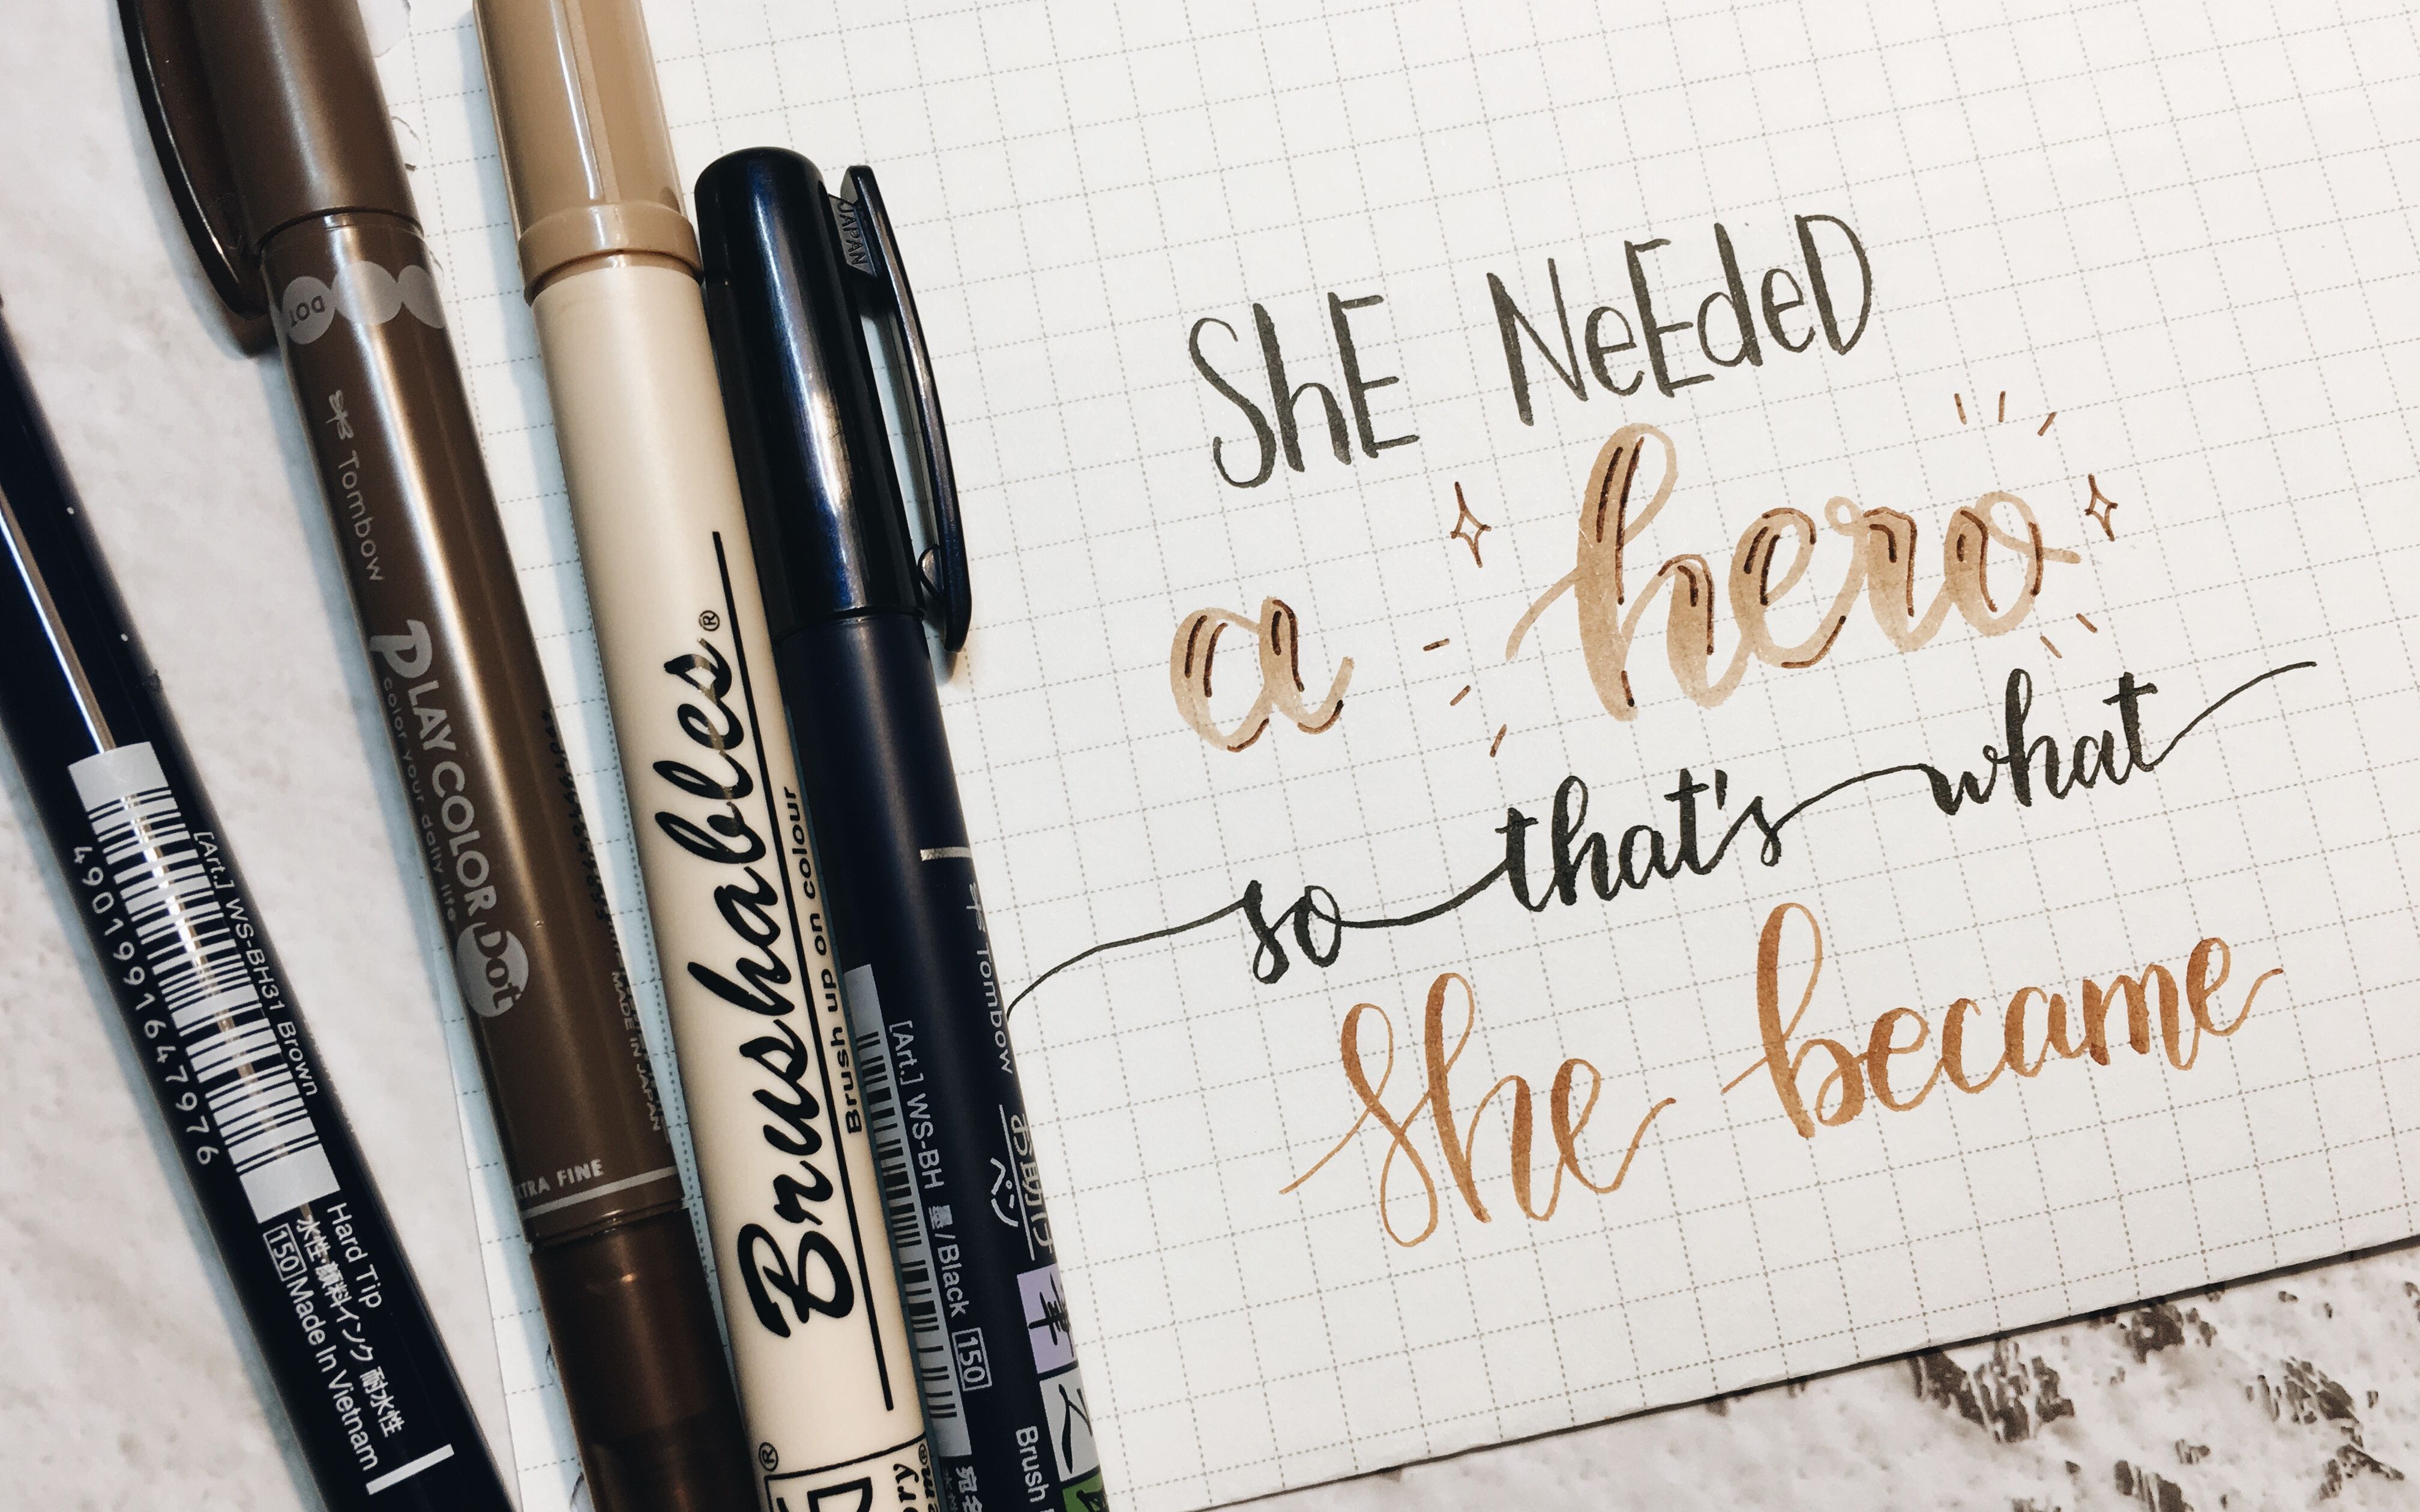 ShE NeEdeD
a hero
so that's what
she became
JAPAN
DOT
Tombow
PLAY COLOR DOT
color your daily life
MADE IN JAPAN
EXTRA FINE
Brushables®
Brush up on colour
[Art.] WS-BH31 Brown
4901991647976
Hard Tip
水性・顔料インク 耐水性
150 Made In Vietnam
Tombow
お助けペン
[Art.] WS-BH 墨/Black 150
筆
Brush